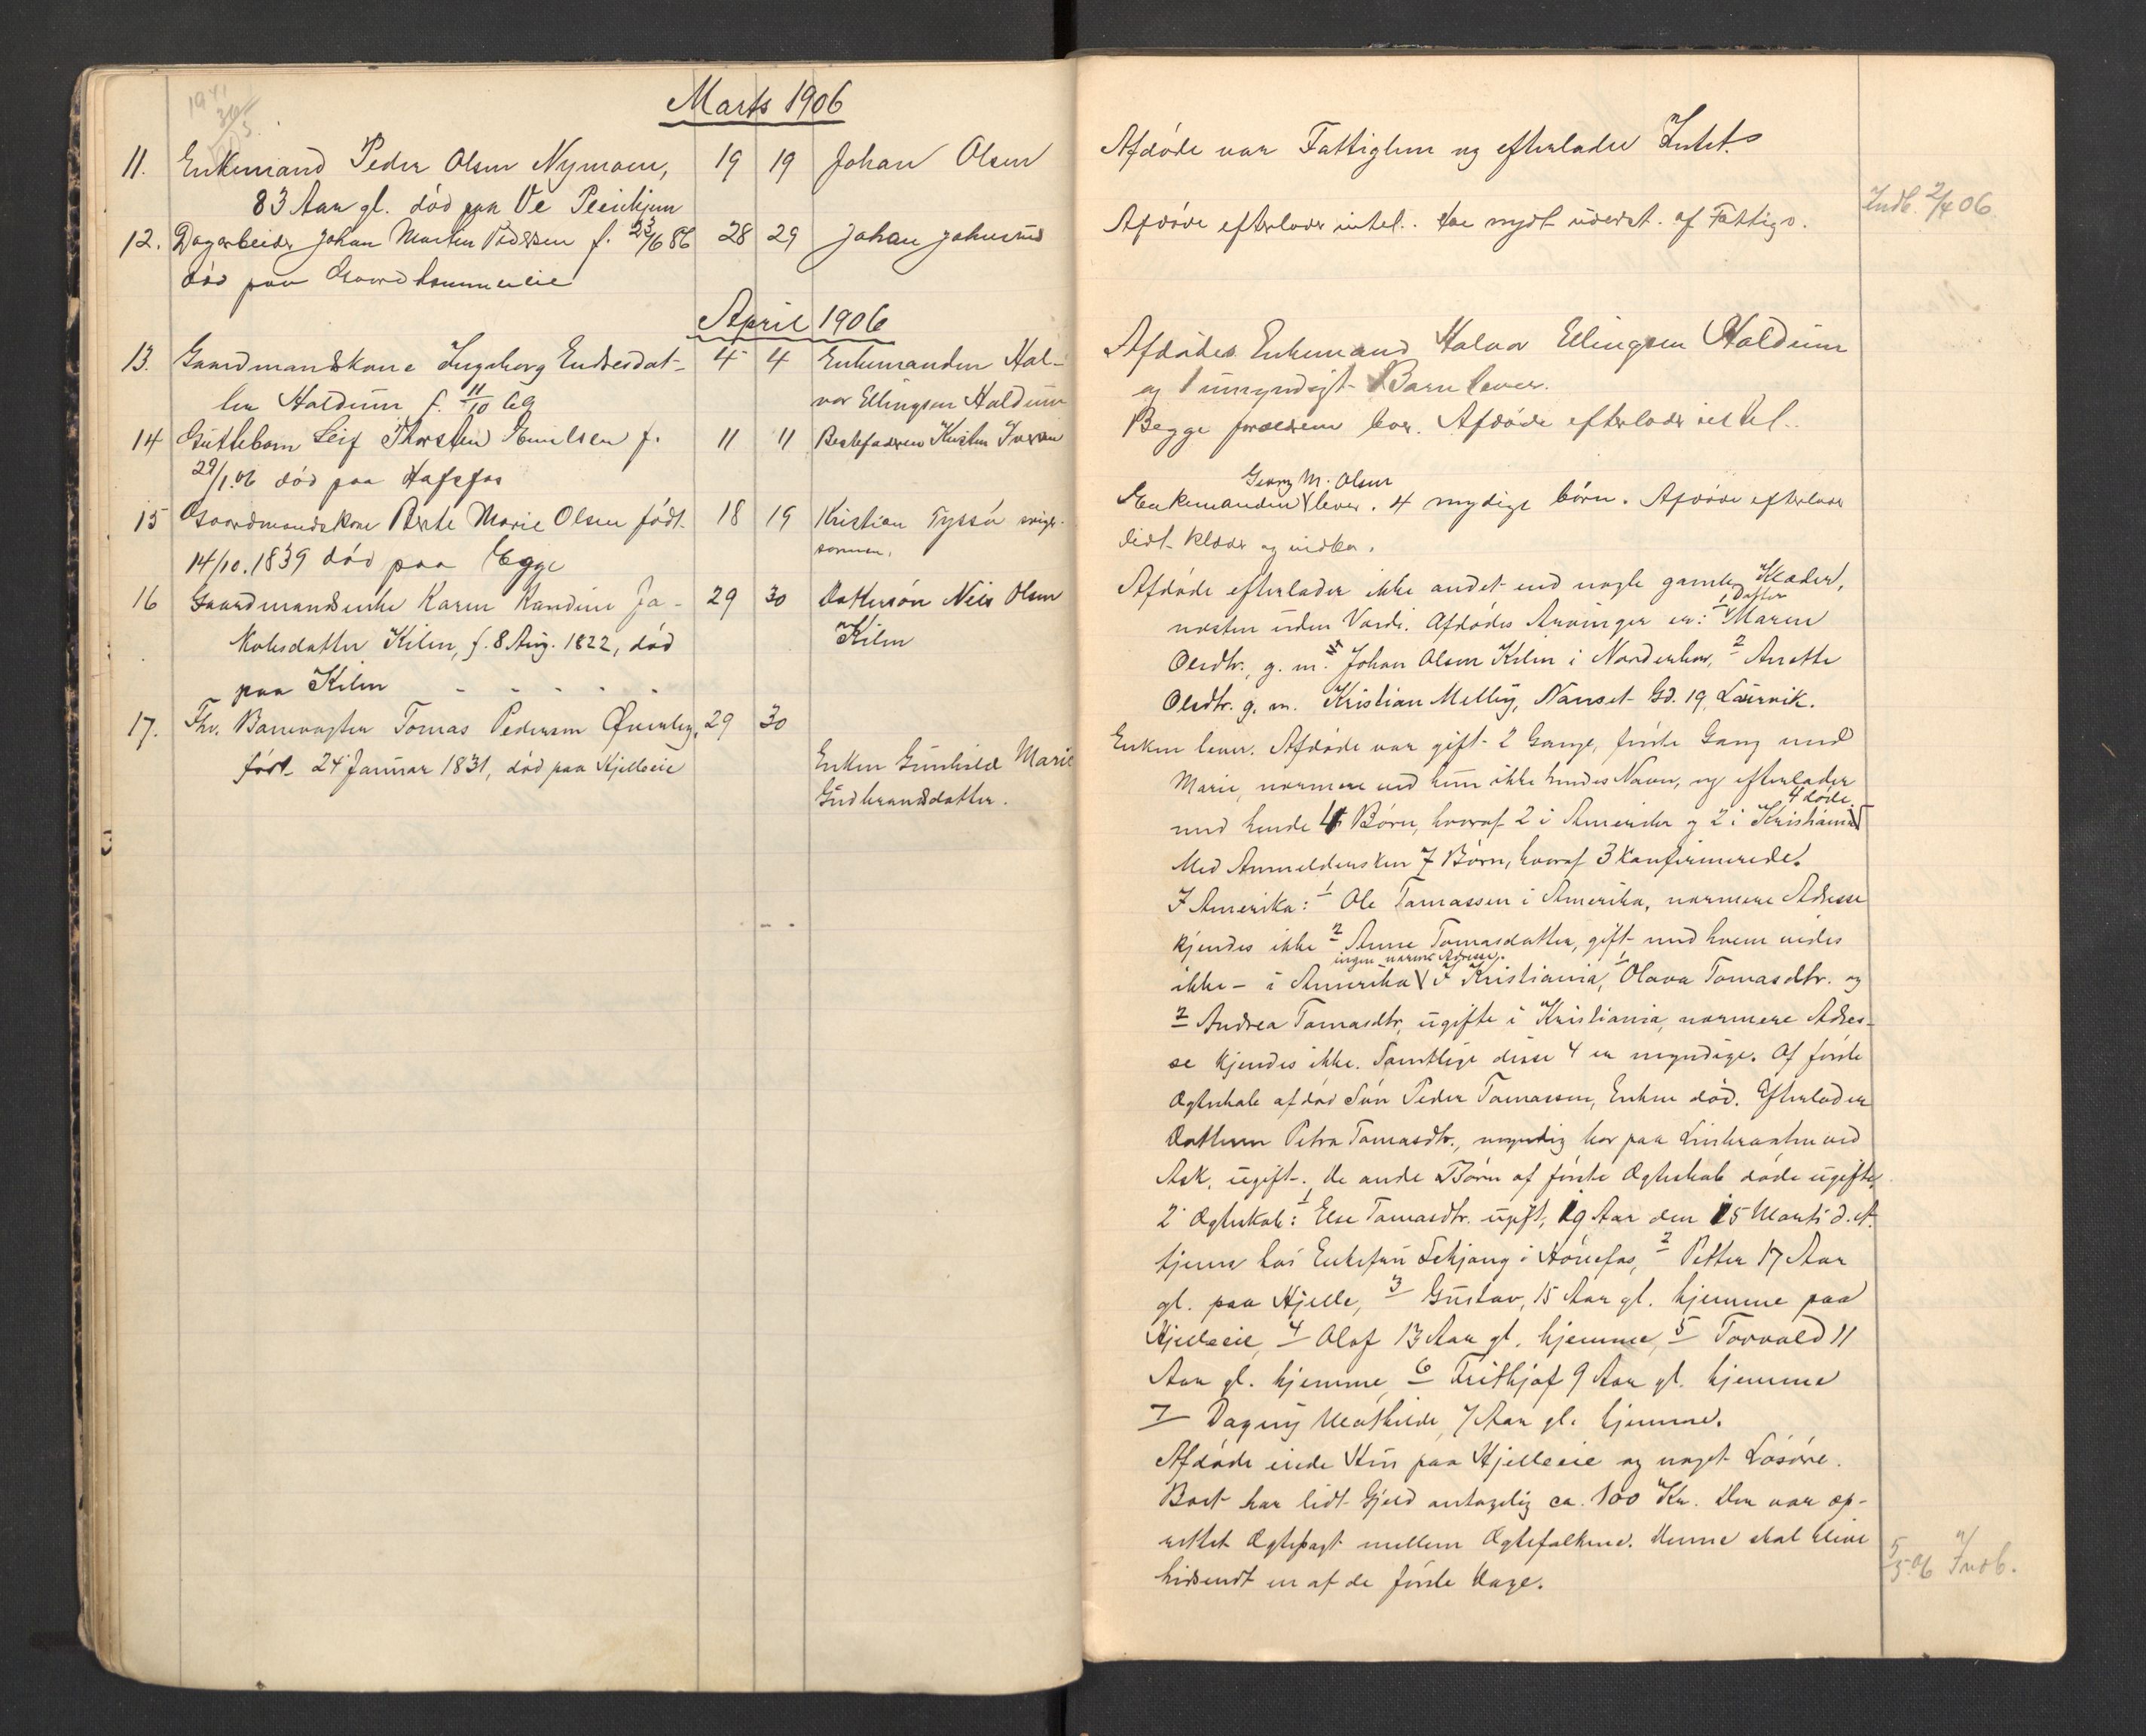 Marts 1906
11. Enkemand Peder Olsen Nymoen, 19 19 Johan Olsen
83 Aar gl. død paa Ve
12. Dagarbeider Johan Martin Pedersen f. 23/6 86 28 29 Johan Johnsrud
død paa
April 1906
13. Gaardmandskone Ingeborg Endresdat- 4 4 Enkemanden Hal-
ter Haldum f. 11/10 69 vor Ellingsen Haldum
14 Guttebarn Leif Thorsten Emilsen f. 11 11 Bestefaderen Kristen Iversen
29/1.06 død paa Hofsfos
15 Gaardmandskone Berte Marie Olsen født 18 19 Kristian Tyssø sviger-
sønnen.
14/10.1839 død paa Egge
16 Gaardmandsenke Karen Randine Ja- 29 30 Dattersøn Nils Olsen
kobsdatter Kilen, f. 8 Aug. 1822, død Kilen
paa Kilen
17. Fhv. Banevogter Tomas Pedersen 29 30
født 24 Januar 1831, død paa Hjelleeie
Enken Gunhild Marie
Gudbrandsdatter.
Afdøde var Fattiglem og efterlader Intet.
Indb. 2/4 06
Afdøde efterlader intet. Har nydt underst. af Fattigv.
Afdødes Enkemand Halvor Ellingsen Haldum
og 1 umyndigt Barn lever.
Begge forældrene lever. Afdøde efterlader intet.
Georg M. Olsen
Enkemanden lever. 4 myndige børn. Afdøde efterlader
lidt klæder og indbo.
Afdøde efterlader ikke andet end nogle gamle Klæder,
Datter
næsten uden Værdi. Afdødes Arvinger er: 1 Maren
Olsdtr., g. m. Johan Olsen Kilen i Norderhov, 2 Anette
Olsdtr. g. m. Kristian Melby, Nanset Gd. 19, Laurvik.
Enken lever. Afdøde var gift 2 Gange, første Gang med
Marie, nærmere ved hun ikke hendes Navn, og efterlader
4 døde.
med hende 4 Børn, hvoraf 2 i Amerika og 2 i Kristiania
Med Anmeldersken 7 Børn, hvoraf 3 konfirmerede.
I Amerika: 1 Ole Tomassen i Amerika, nærmere Adresse
kjendes ikke 2 Anne Tomasdatter, gift med hvem vides
ingen nærmere Adresse.
ikke – i Amerika I Kristiania, 1 Olava Tomasdtr. og
2 Andrea Tomasdtr, ugifte i Kristiania, nærmere Adres-
se kjendes ikke. Samtlige disse 4 er myndige. Af første
Ægteskab afdød Søn Peder Tomassen, Enken død. Efterlader
Datteren Petra Tomasdtr., myndig bor paa ved
Ask, ugift. De andre Børn af første Ægteskab døde ugifte.
2 Ægteskab: 1 Else Tomasdtr. ugift, 19 Aar den 15 Marts d. A.
tjener hos Enkefru Schjong i Hønefos, 2 Petter 17 Aar
gl. paa Hjelle, 3 Gustav, 15 Aar gl. hjemme paa
Hjelleeie, 4 Olaf 13 Aar gl. hjemme, 5 Torvald 11
Aar gl. hjemme, 6 Frithjof 9 Aar gl. hjemme
7 Dagny Mathilde, 7 Aar gl. hjemme.
Afdøde eiede Hus paa Hjelleeie og noget Løsøre.
Boet har lidt Gjeld antagelig ca. 100 Kr. Der var op-
rettet Ægtepagt mellem Ægtefolkene. Denne skal blive
hidsendt en af de første Dage.
5/5 06 Indb.